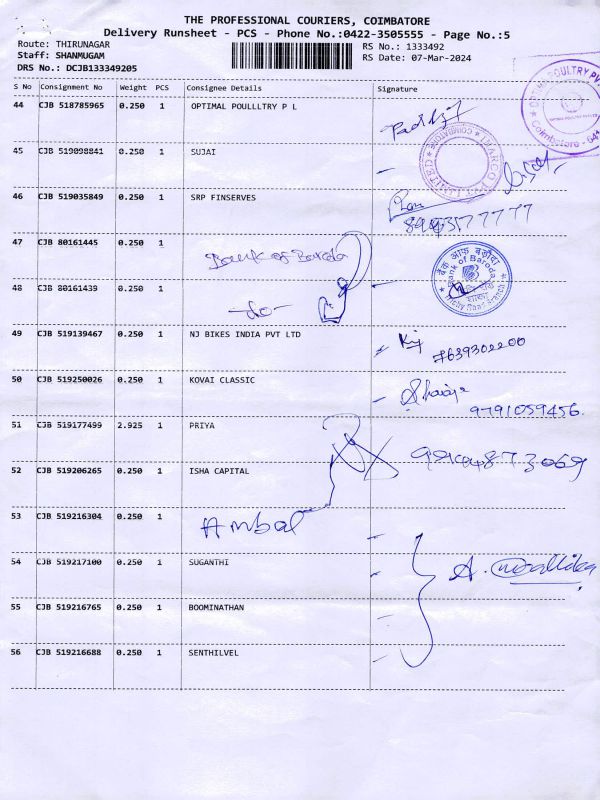 THE PROFESSIONAL COURIERS, COIMBATORE
Delivery Runsheet - PCS - Phone No.:0422-3505555 - Page No.:5
Route: THIRUNAGAR RS No.: 1333492
Staff: SHANMUGAM RS Date: 07-Mar-2024
DRS No.: DCJB133349205
S No Consignment No Weight PCS Consignee Details Signature
44 CJB 518785965 0.250 1 OPTIMAL POULLLTRY P L
45 CJB 519098841 0.250 1 SUJAI
46 CJB 519035849 0.250 1 SRP FINSERVES
47 CJB 80161445 0.250 1 Bank of Baroda
48 CJB 80161439 0.250 1 -do-
बैंक ऑफ़ बड़ौदा
Bank of Baroda
Trichy Road Branch
शाखा
49 CJB 519139467 0.250 1 NJ BIKES INDIA PVT LTD 7639302200
50 CJB 519250026 0.250 1 KOVAI CLASSIC
9791059456.
51 CJB 519177499 2.925 1 PRIYA
52 CJB 519206265 0.250 1 ISHA CAPITAL
53 CJB 519216304 0.250 1 Ambal
54 CJB 519217100 0.250 1 SUGANTHI A. Mallika
55 CJB 519216765 0.250 1 BOOMINATHAN
56 CJB 519216688 0.250 1 SENTHILVEL